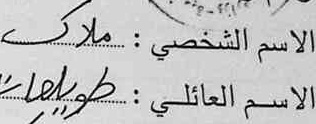 الاسم الشخصي : ملاك
الاسم العائلي :